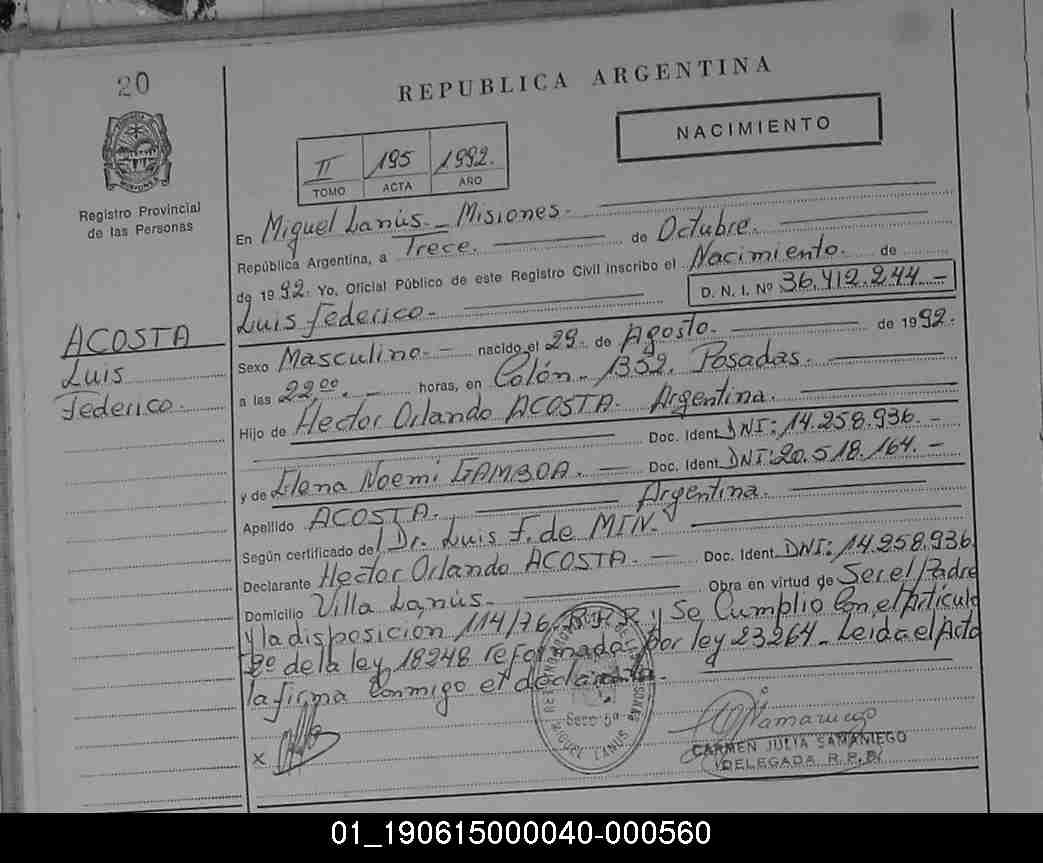 20
REPUBLICA ARGENTINA
NACIMIENTO
II 195 1992.
TOMO ACTA AÑO
Registro Provincial
de las Personas
En Miguel Lanús - Misiones.
República Argentina, a Trece. de Octubre.
de 1992. Yo, Oficial Público de este Registro Civil inscribo el Nacimiento. de
Luis Federico. D. N. I. Nº 36.412.244.-
ACOSTA
Luis
Federico.
Sexo Masculino.- nacido el 29. de Agosto. de 1992.
a las 22,00. - horas, en Colón - 1352. Posadas.
Hijo de Hector Orlando ACOSTA. Argentina.
Doc. Ident DNI: 14.258.936.-
y de Elena Noemi GAMBOA. Doc. Ident DNI: 20.518.164.-
Argentina.
Apellido ACOSTA.
Según certificado de Dr. Luis F. de MIN.
Declarante Hector Orlando ACOSTA. Doc. Ident DNI: 14.258.936
Domicilio Villa Lanús. Obra en virtud de Ser el Padre
y la disposición 114/76 y Se Cumplió Con el Artículo
2º de la ley 18248 reformada por ley 23264 - Leida el Acta
la firma Conmigo el declarante.
Secc 5ª
MIGUEL LANUS
X
CARMEN JULIA SAMANIEGO
DELEGADA R.P.P.
01_190615000040-000560